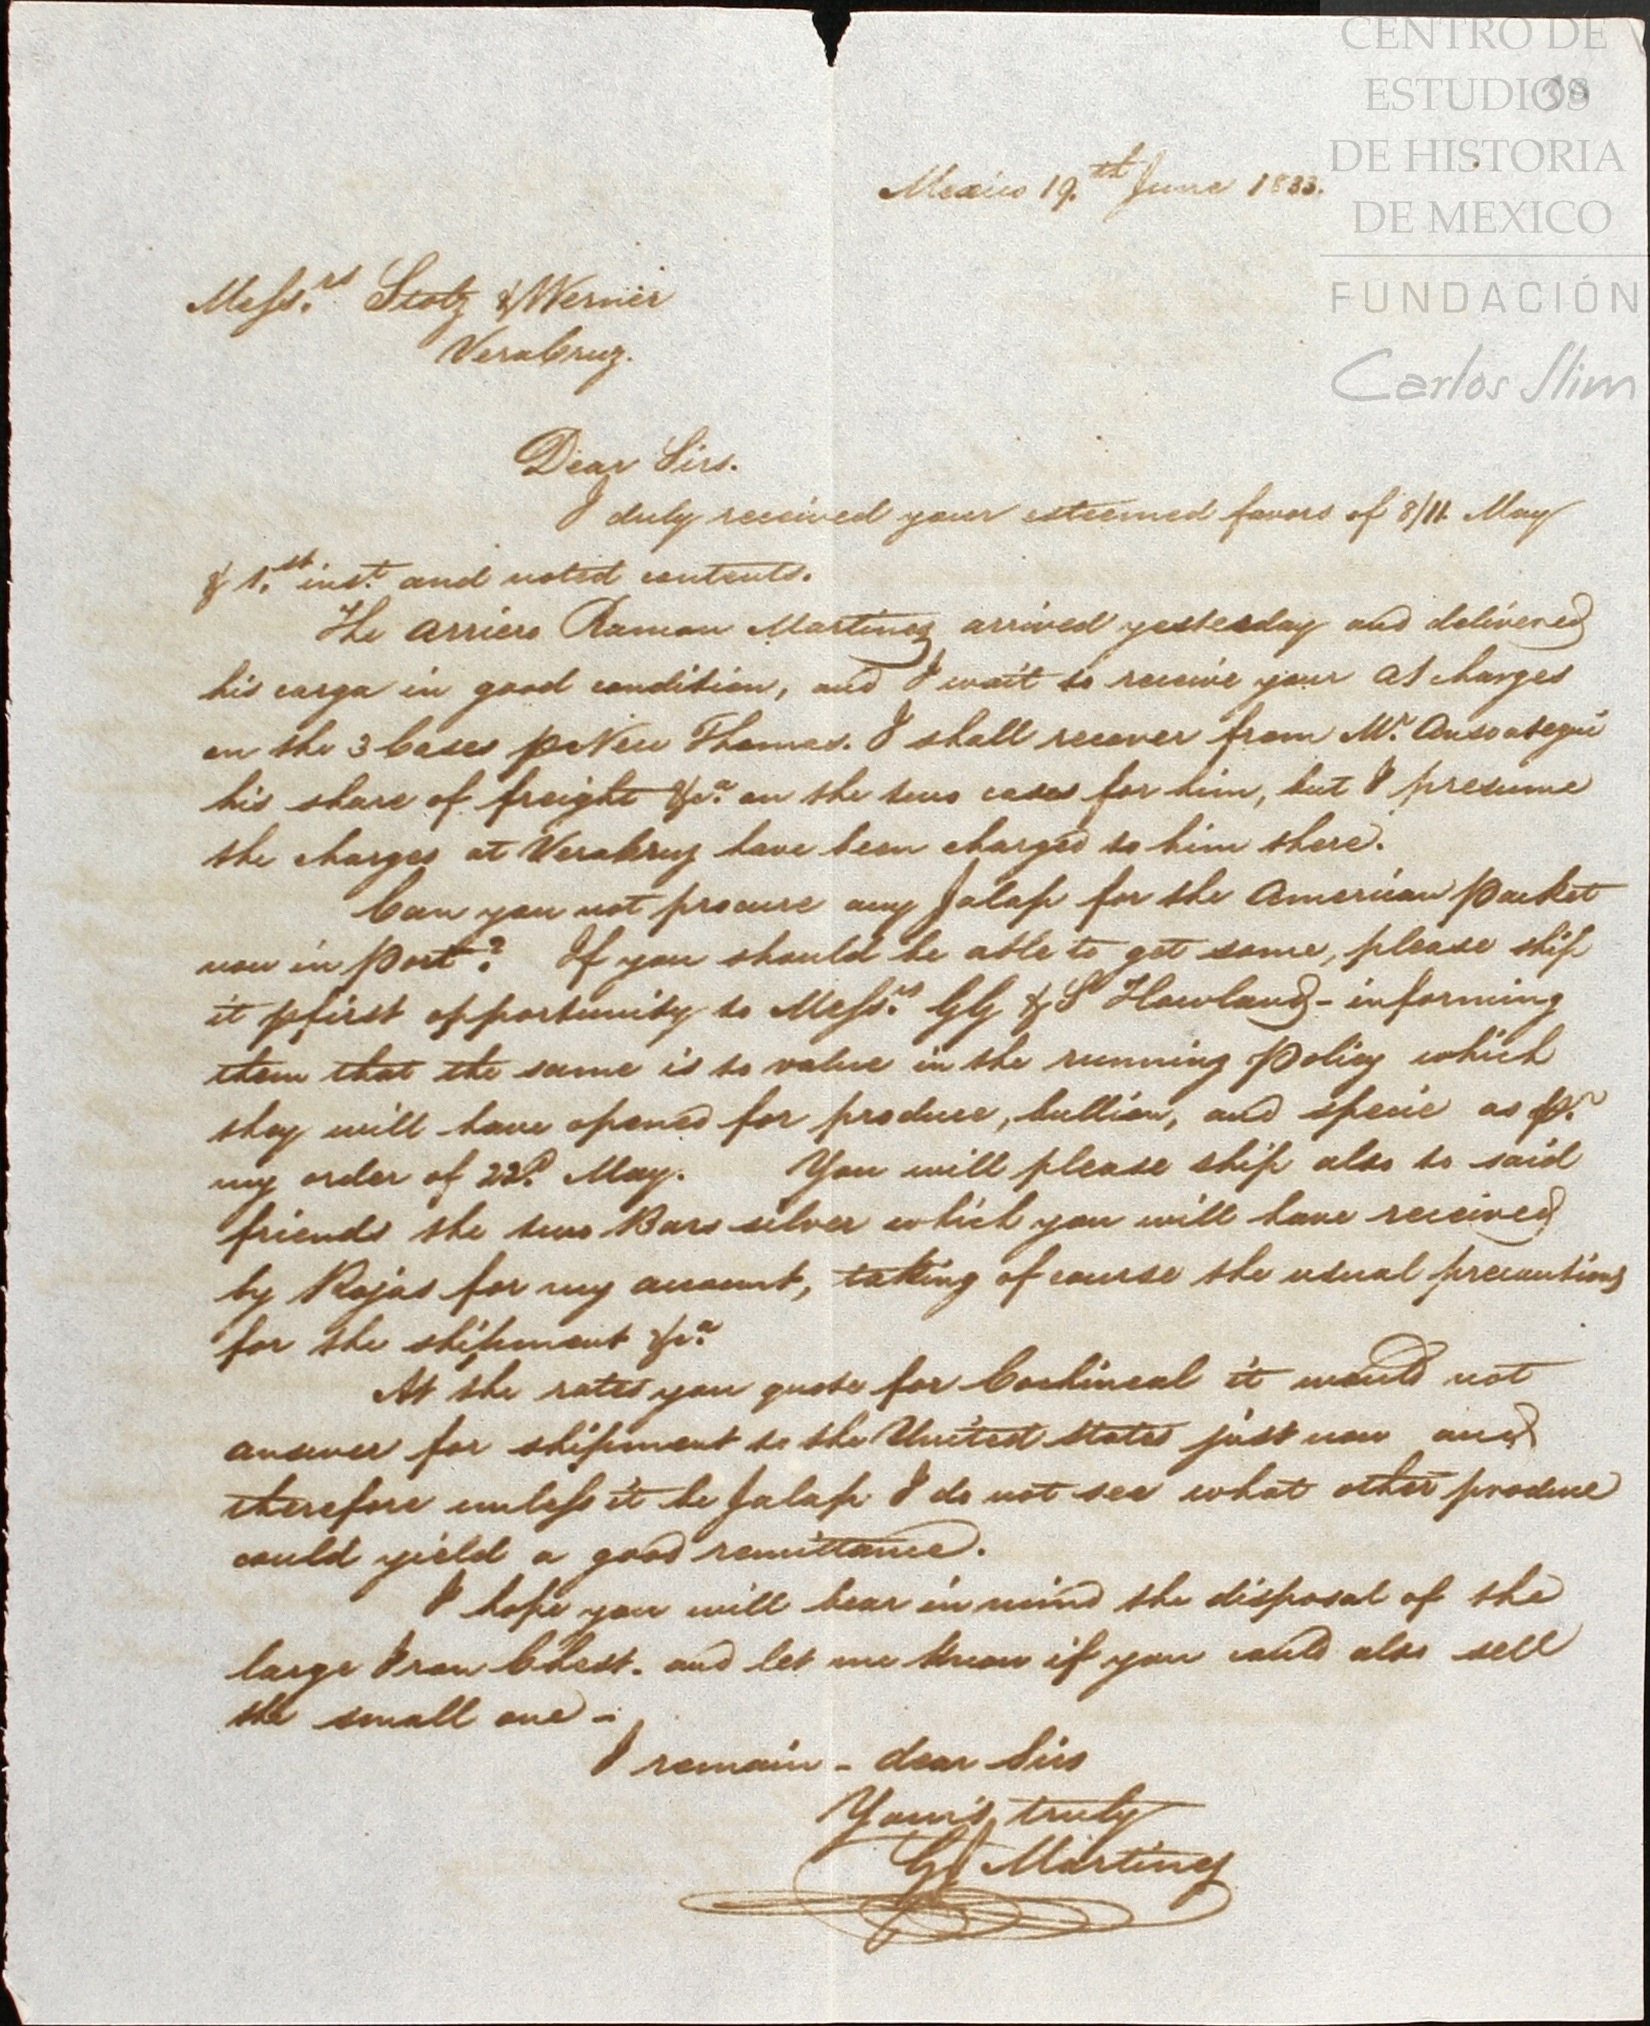 CENTRO DE
ESTUDIOS
DE HISTORIA
DE MEXICO
FUNDACIÓN
Carlos Slim
Mexico 19.th June 1833.
Mess.rs Stolz & Werner
VeraCruz.
Dear Sirs.
I duly received your esteemed favors of 8/11. May
& 1.st inst. and noted contents.
The arriero Ramon Martinez arrived yesterday and delivered
his carga in good condition, and I wait to receive your a/ charges
on the 3 Cases p New Thomas. I shall recover from Mr. Ansoategui
his share of freight &ca. on the two cases for him, but I presume
the charges at VeraCruz have been charged to him there.
Can you not procure any Jalap for the American Packet
now in Port? If you should be able to get some, please ship
it p first opportunity to Mess.rs GG & S Howland - informing
them that the same is to value in the running Policy which
they will have opened for produce, bullion, and specie as p.r
my order of 22.d May. You will please ship also to said
friends the two Bars silver which you will have received
by Rojas for my account, taking of course the usual precautions
for the shipment &ca.
At the rates you quote for Cochineal it would not
answer for shipment to the United States just now and
therefore unless it be Jalap I do not see what other produce
could yield a good remittance.
I hope you will bear in mind the disposal of the
large Iron Chest. and let me know if you could also sell
the small one -
I remain - dear Sirs
Yours truly
Martinez